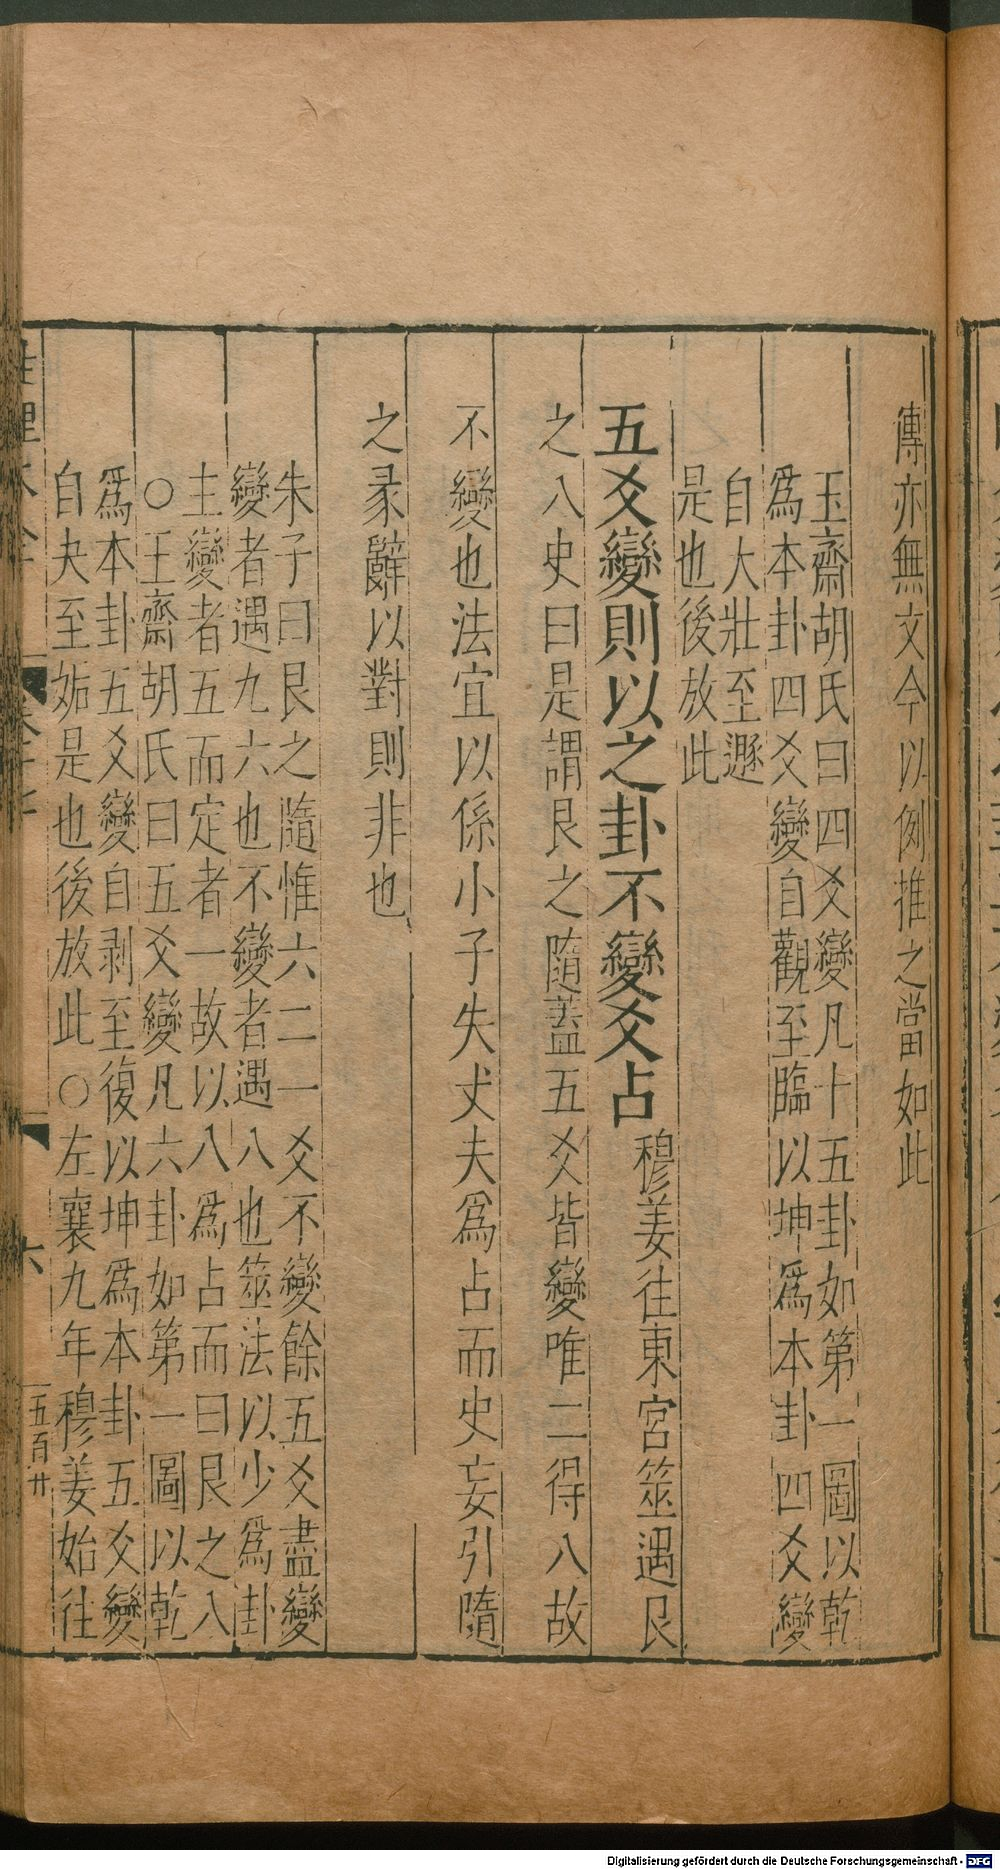 傳亦無文今以例推之當如此
玉齋胡氏曰四爻變凡十五卦如第一圖以乾
爲本卦四爻變自觀至臨以坤爲本卦四爻變
自大壯至遯
是也後放此
五爻變則以之卦不變爻占穆姜往東宮筮遇艮
之八史曰是謂艮之隨蓋五爻皆變唯二得八故
不變也法宜以係小子失丈夫爲占而史妄引隨
之彖辭以對則非也
朱子曰艮之隨惟六二一爻不變餘五爻盡變
變者遇九六也不變者遇八也筮法以少爲卦
主變者五而定者一故以八爲占而曰艮之八
○王齋胡氏曰五爻變凡六卦如第一圖以乾
爲本卦五爻變自剥至復以坤爲本卦五爻變
自夬至姤是也後放此○左襄九年穆姜始往
性理大全
六
五百廿
Digitalisierung gefördert durch die Deutsche Forschungsgemeinschaft - DFG